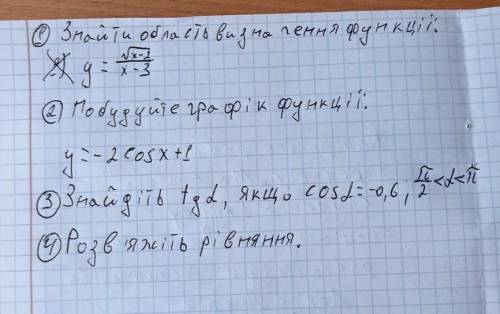 ① Знайти область визначення функції:
y = √x-2 / x-3
② Побудуйте графік функції:
y = -2cosx+1
③ Знайдіть tgα, якщо cosα = -0,6, π/2 < α < π
④ Розв'яжіть рівняння.